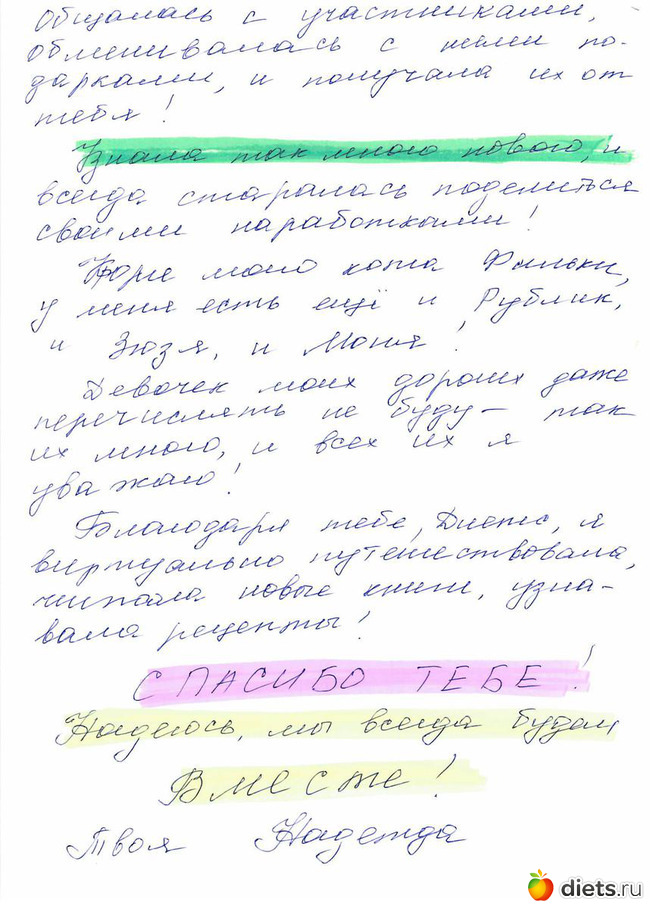 Общалась с участниками,
обменивалась с ними по-
дарками, и получала их от
тебя!
Узнала так много нового, и
всегда старалась поделиться
своими наработками!
Кроме моего кота Фильки,
у меня есть ещё и Рублик,
и Зюзя, и Моня!
Девочек моих дорогих даже
перечислять не буду – так
их много, и всех их я
уважаю!
Благодаря тебе, Диетс, я
виртуально путешествовала,
читала новые книги, узна-
вала рецепты!
СПАСИБО ТЕБЕ!
Надеюсь, мы всегда будем
Вместе!
Твоя Надежда
diets.ru